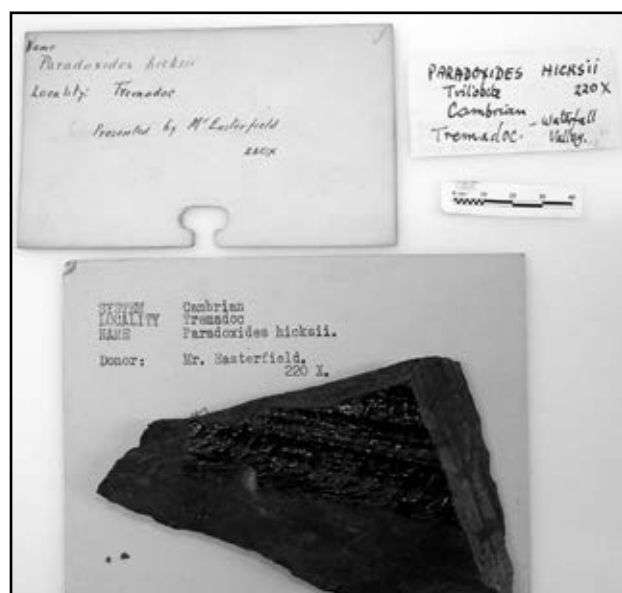 Name
Paradoxides hicksii
Locality: Tremadoc
Presented by Mr Easterfield
220X
PARADOXIDES HICKSII
Trilobite 220X
Cambrian
Tremadoc. - Waterfall Valley.
SYSTEM Cambrian
LOCALITY Tremadoc
NAME Paradoxides hicksii.
Donor: Mr. Easterfield.
220 X.